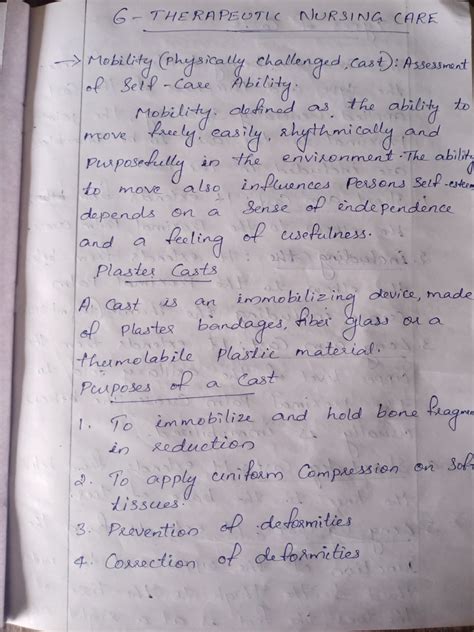 6 - THERAPEUTIC NURSING CARE
→ Mobility (Physically challenged, cast): Assessment
of Self-Care Ability.
Mobility defined as the ability to
move freely, easily, rhythmically and
Purposefully in the environment. The ability
to move also influences Persons Self-esteem
depends on a sense of independence
and a feeling of usefulness.
Plaster Casts
A Cast is an immobilizing device, made
of Plaster bandages, fiber glass or a
thermolabile Plastic material.
Purposes of a Cast
1. To immobilize and hold bone fragmen
in reduction
2. To apply uniform Compression on Soft
tissues.
3. Prevention of deformities
4. Correction of deformities